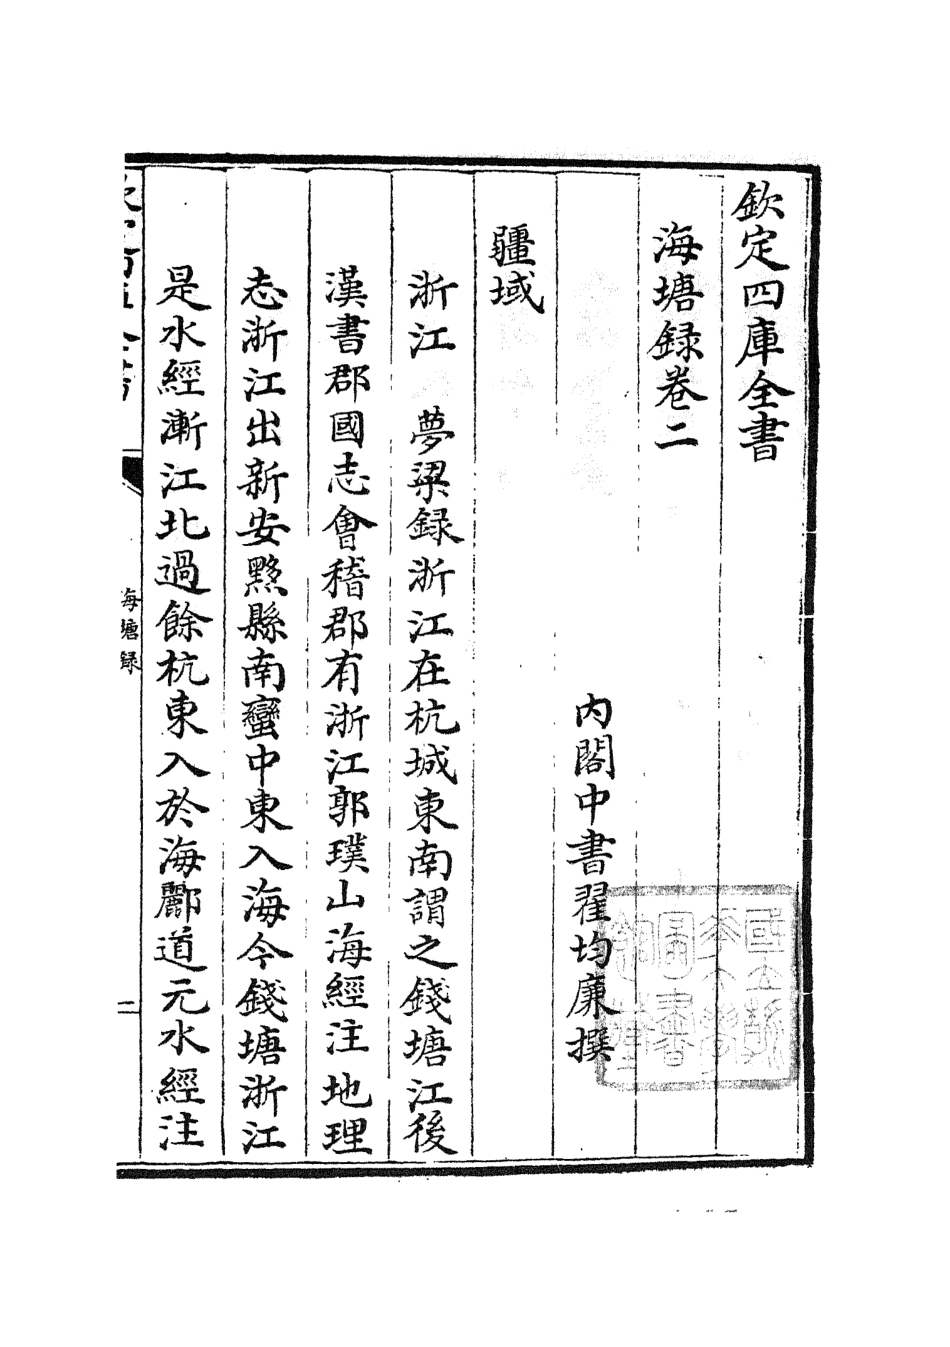 欽定四庫全書
海塘録卷二
內閣中書翟均廉撰
疆域
浙江　夢梁録浙江在杭城東南謂之錢塘江後
漢書郡國志會稽郡有浙江郭璞山海經注地理
志浙江出新安黟縣南蠻中東入海今錢塘浙江
是水經漸江北過餘杭東入於海酈道元水經注
海塘録
二